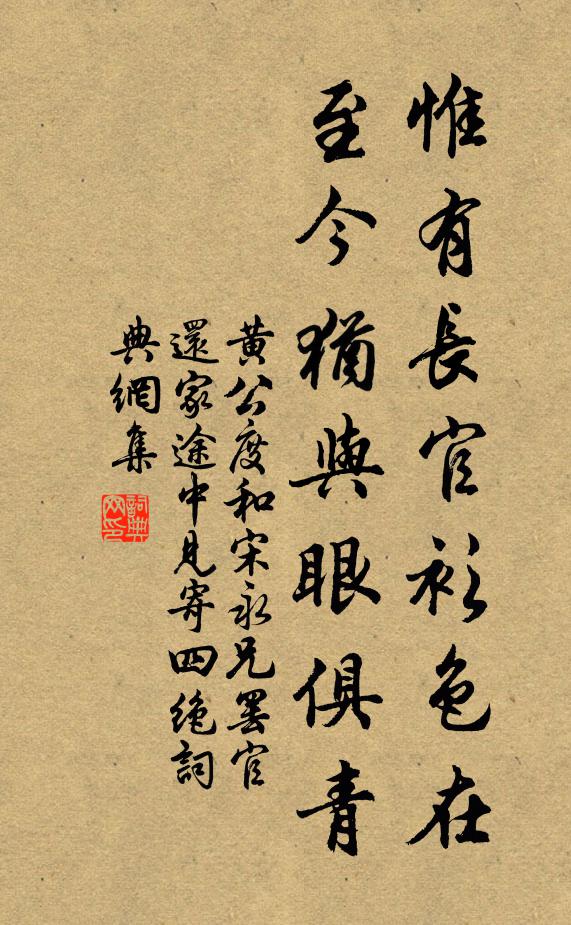 惟有長官衫色在
至今猶與眼俱青
黃公度和宋永兄罢官
還家途中見寄四绝詞
典網集
詞典网印